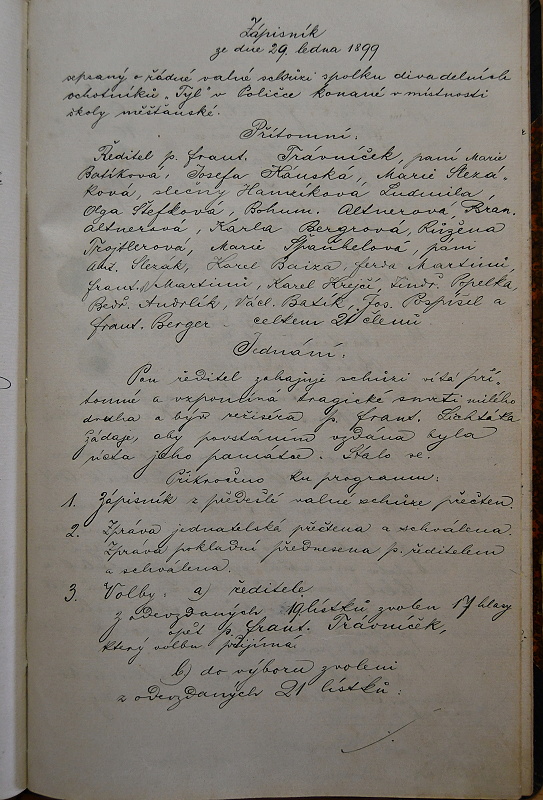 Zápisník
ze dne 29. ledna 1899
sepsaný o řádné valné schůzi spolku divadelních
ochotníků „Tyl“ v Poličce konané v místnosti
školy měšťanské.
Přítomni:
Ředitel p. Frant. Trávníček, paní Marie
Batíková, Josefa Hanská, Marie Slezá-
ková, slečny Ludmila,
Olga Štefková, Bohum. Altnerová, Fran.
Altnerová, Karla Bergrová, Růžena
Trojtlerová, Marie Španhelová, páni
Ant. Slezák, Karel Baiza, Ferd. Martinů
Frant. Martinů, Karel Krejčí, Jindř. Popelka,
Bedř. Andrlík, Václ. Batík, Jos. Pospíšel a
Frant. Berger celkem 21 členů.
Jednání:
Pan ředitel zahajuje schůzi vítá pří-
tomné a vzpomíná tragické smrti milého
druha a býv. režiséra p. Frant. Lichtága
žádaje, aby povstáním vzdána byla
úcta jeho památce. Stalo se.
Přikročeno ku programu:
1. Zápisník z předešlé valné schůze přečten.
2. Zpráva jednatelská přečtena a schválena.
Zpráva pokladní přednesena p. ředitelem
a schválena.
3. Volby: a) ředitele
z odevzdaných 19 lístků zvolen 17 hlasy
opět p. Frant. Trávníček,
který volbu přijímá.
b) do výboru zvoleni
z odevzdaných 21 lístků: